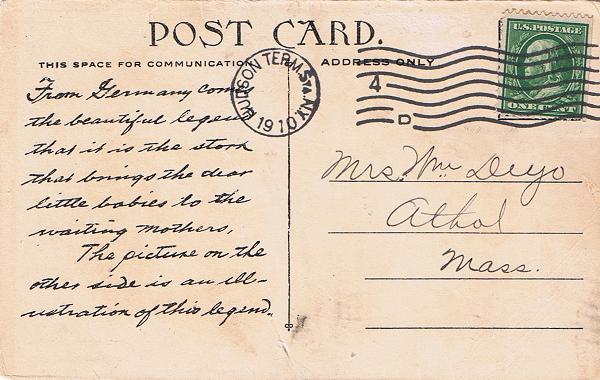 POST CARD.
THIS SPACE FOR COMMUNICATION
ADDRESS ONLY
From Germany comes
the beautiful legend
that it is the stork
that brings the dear
little babies to the
waiting mothers,
The picture on the
other side is an ill-
ustration of this legend.
HUDSON TERM. STA. N.Y.
1910
4
D
U.S. POSTAGE
ONE CENT
Mrs. Wm Deyo
Athol
Mass.
8